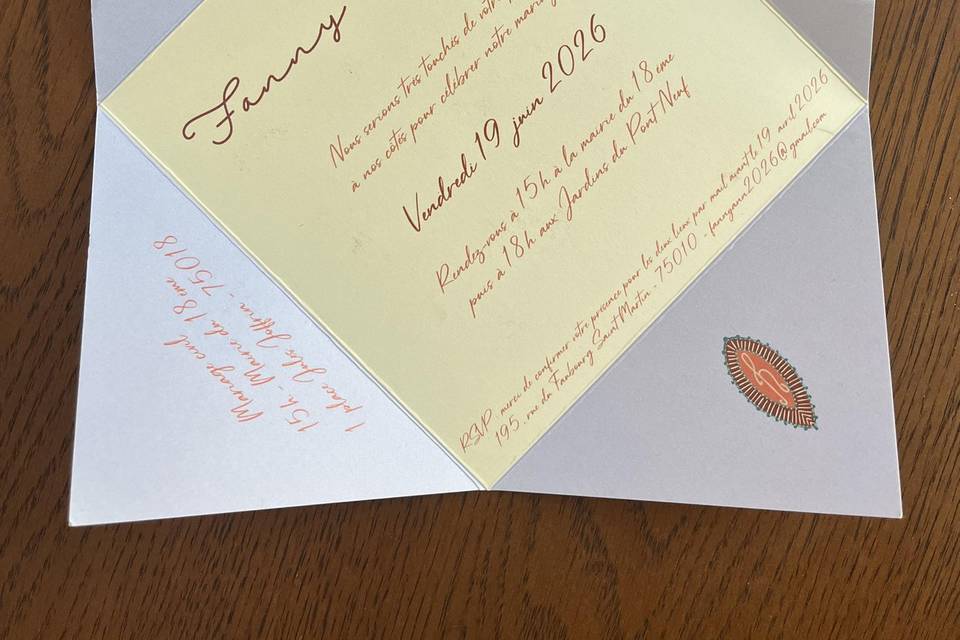 Fanny
Nous serions très touchés de votre
à nos côtés pour célébrer notre
Vendredi 19 juin 2026
Rendez-vous à 15h à la mairie du 18eme
puis à 18h aux Jardins du Pont Neuf
RSVP merci de confirmer votre présence pour les deux lieux par mail avant le 19 avril 2026
195, rue du Faubourg Saint Martin - 75010 - fanngann2026@gmail.com
Mariage civil
15h - Mairie du 18eme
1 place Jules Joffrin - 75018